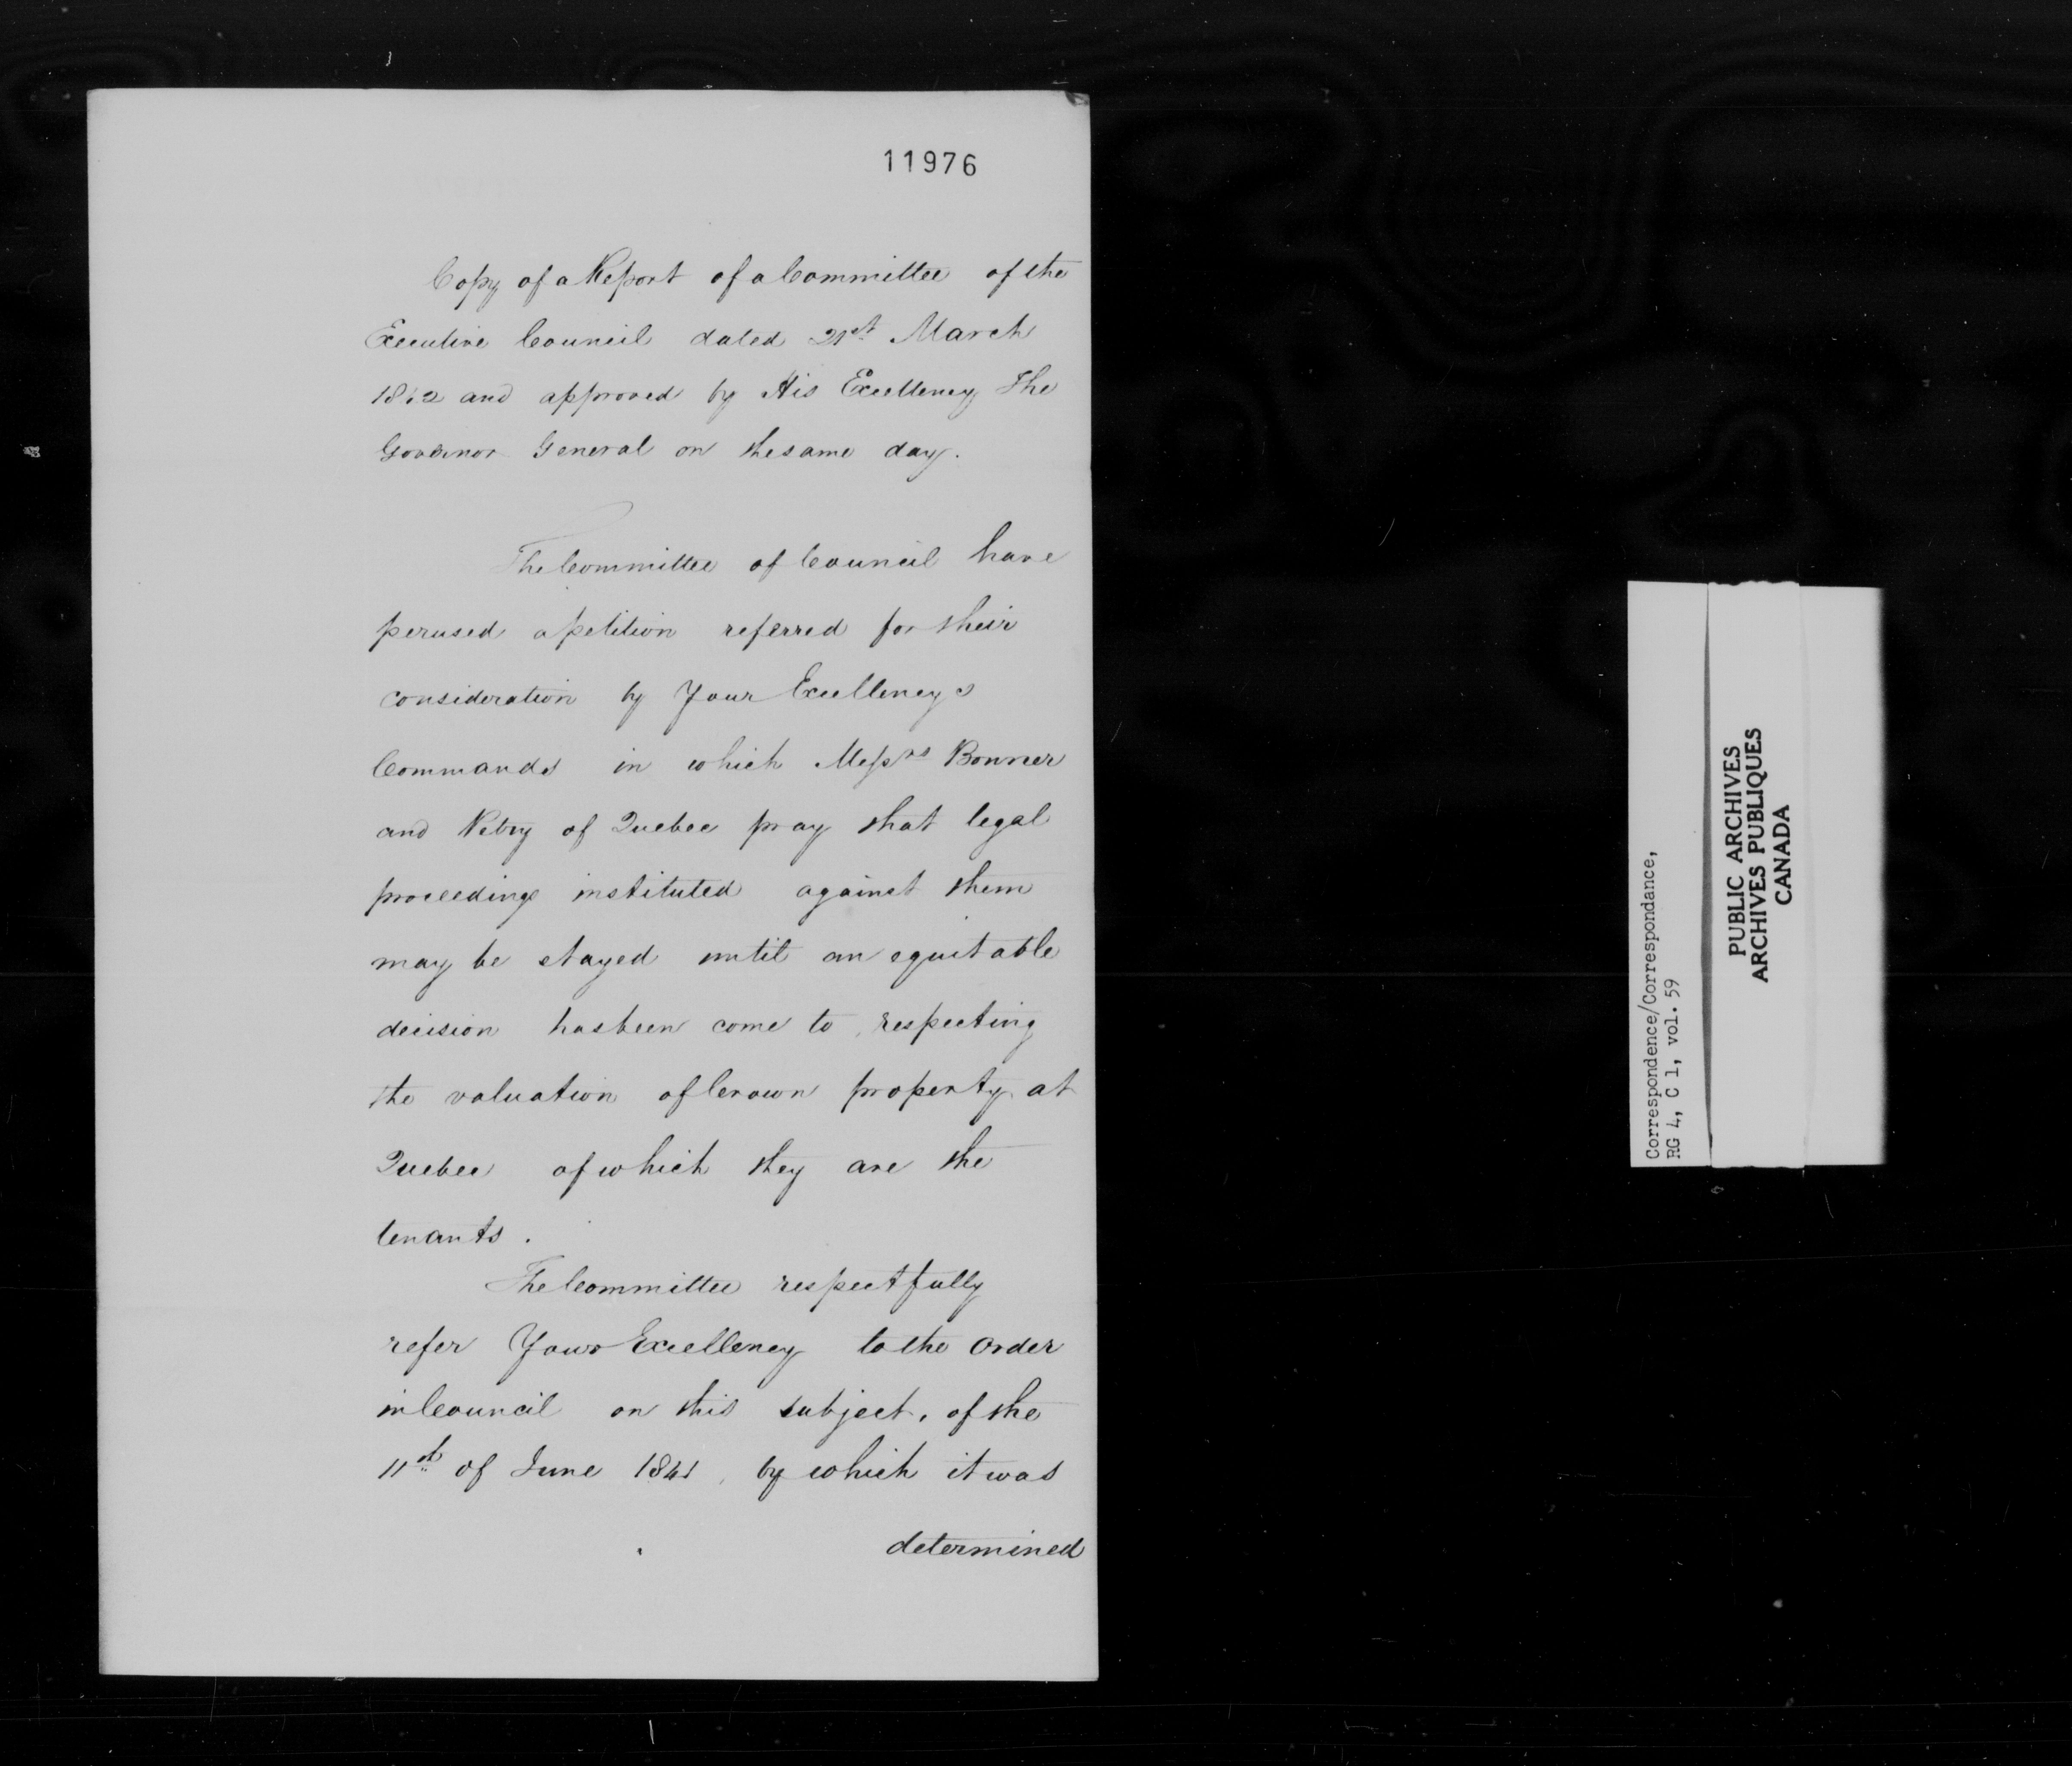 11976
Copy of a Report of a Committee of the
Executive Council dated 21st March
1842 and approved by His Excellency The
Governor General on the same day.
The Committee of Council have
perused a petition referred for their
consideration by Your Excellencys
Commands in which Messrs Bonner
and Petry of Quebec pray that legal
proceedings instituted against them
may be stayed until an equitable
decision has been come to, respecting
the valuation of Crown property at
Quebec of which they are the
tenants.
The Committee respectfully
refer Your Excellency to the Order
in Council on this subject, of the
11th of June 1841, by which it was
determined
Correspondence/Correspondance,
RG 4, C 1, vol. 59
PUBLIC ARCHIVES
ARCHIVES PUBLIQUES
CANADA